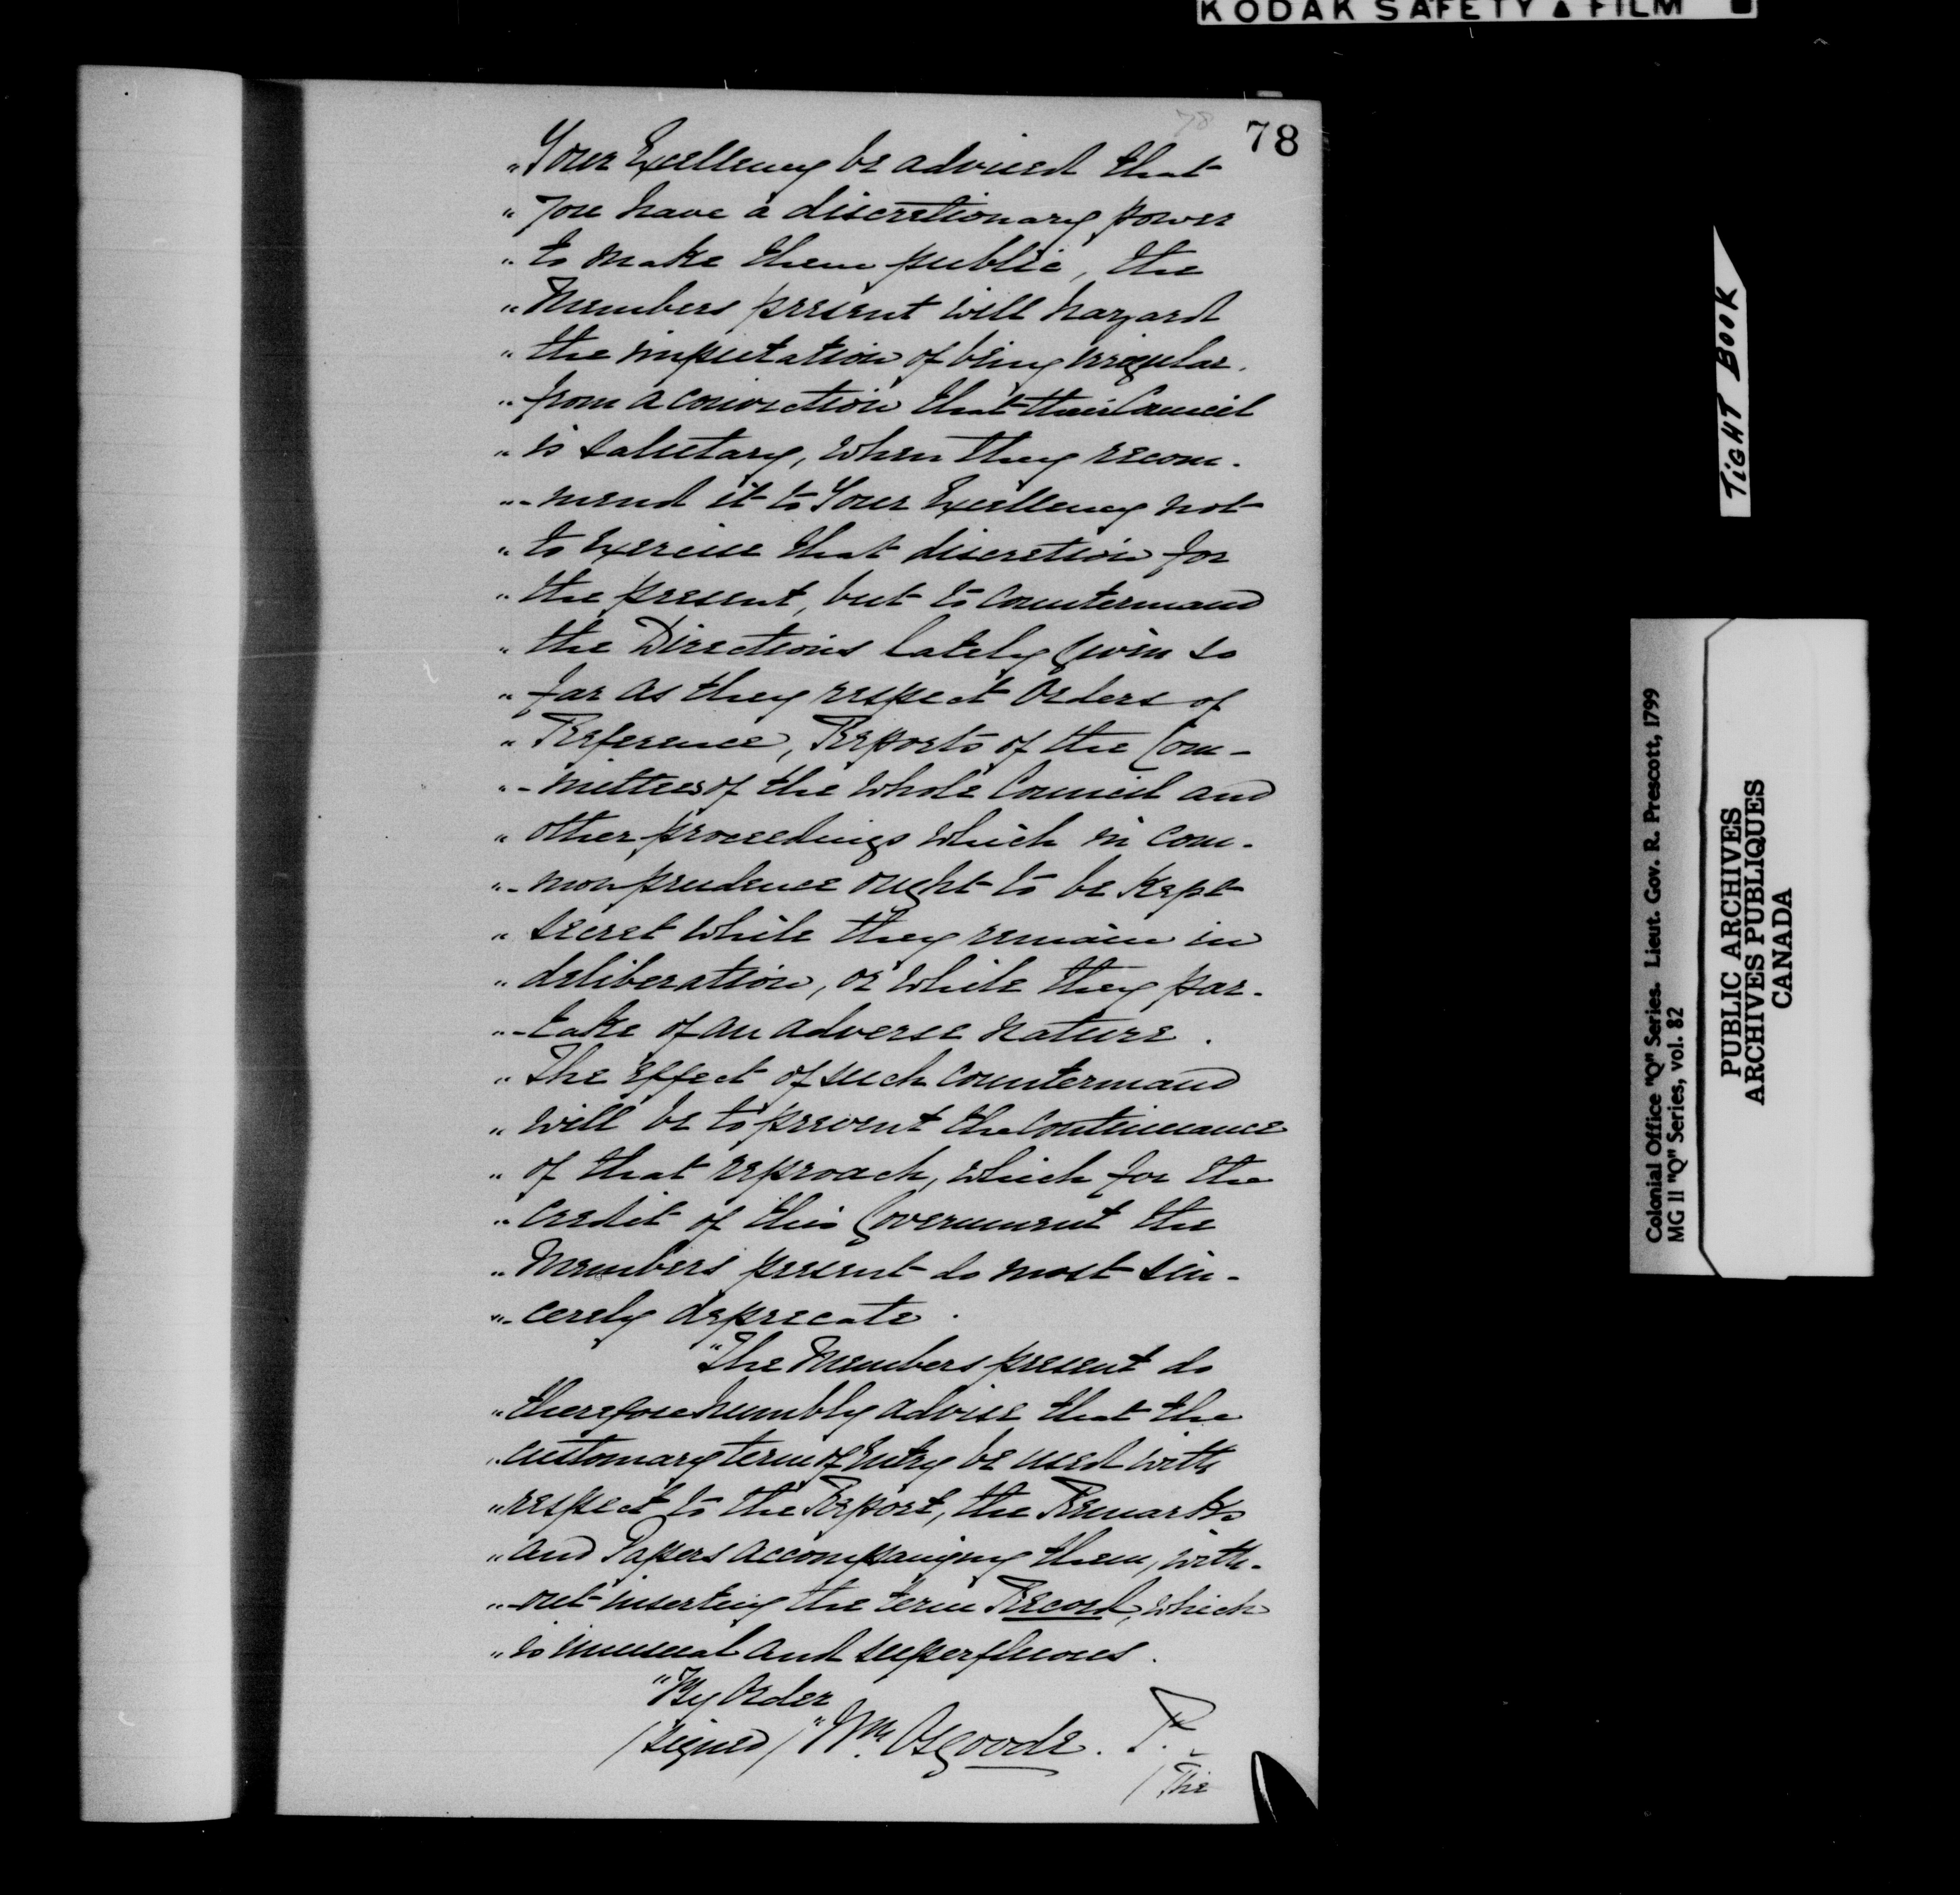 KODAK SAFETY ▲ FILM
78
78
"Your Excellency be advised that
" you have a discretionary power
" to make them public, the
" Members present will hazard
" the imputation of being irregular.
" from a conviction that their Council
" is salutary, when they recom-
"-mend it to Your Excellency not
" to exercise that discretion for
" the present, but to countermand
" the Directions lately given so
" far as they respect Orders of
" Reference, Reports of the Com-
"-mittees of the whole Council and
" other proceedings which in com-
"-mon prudence ought to be kept
" secret while they remain in
" deliberation, or while they par-
"-take of an adverse nature.
" The effect of such countermand
" will be to prevent the continuance
" of that reproach, which for the
" credit of this Government the
" Members present do most sin-
"-cerely deprecate.
"The Members present do
" therefore humbly advise that the
" customary term of Entry be used with
" respect to the Report, the Remarks
" and Papers accompanying them, with-
"-out inserting the term Record, which
" is unusual and superfluous.
"By Order
(signed) "Wm. Osgoode. P.
(The
TIGHT BOOK
Colonial Office "Q" Series. Lieut. Gov. R. Prescott, 1799
MG 11 "Q" Series, vol. 82
PUBLIC ARCHIVES
ARCHIVES PUBLIQUES
CANADA